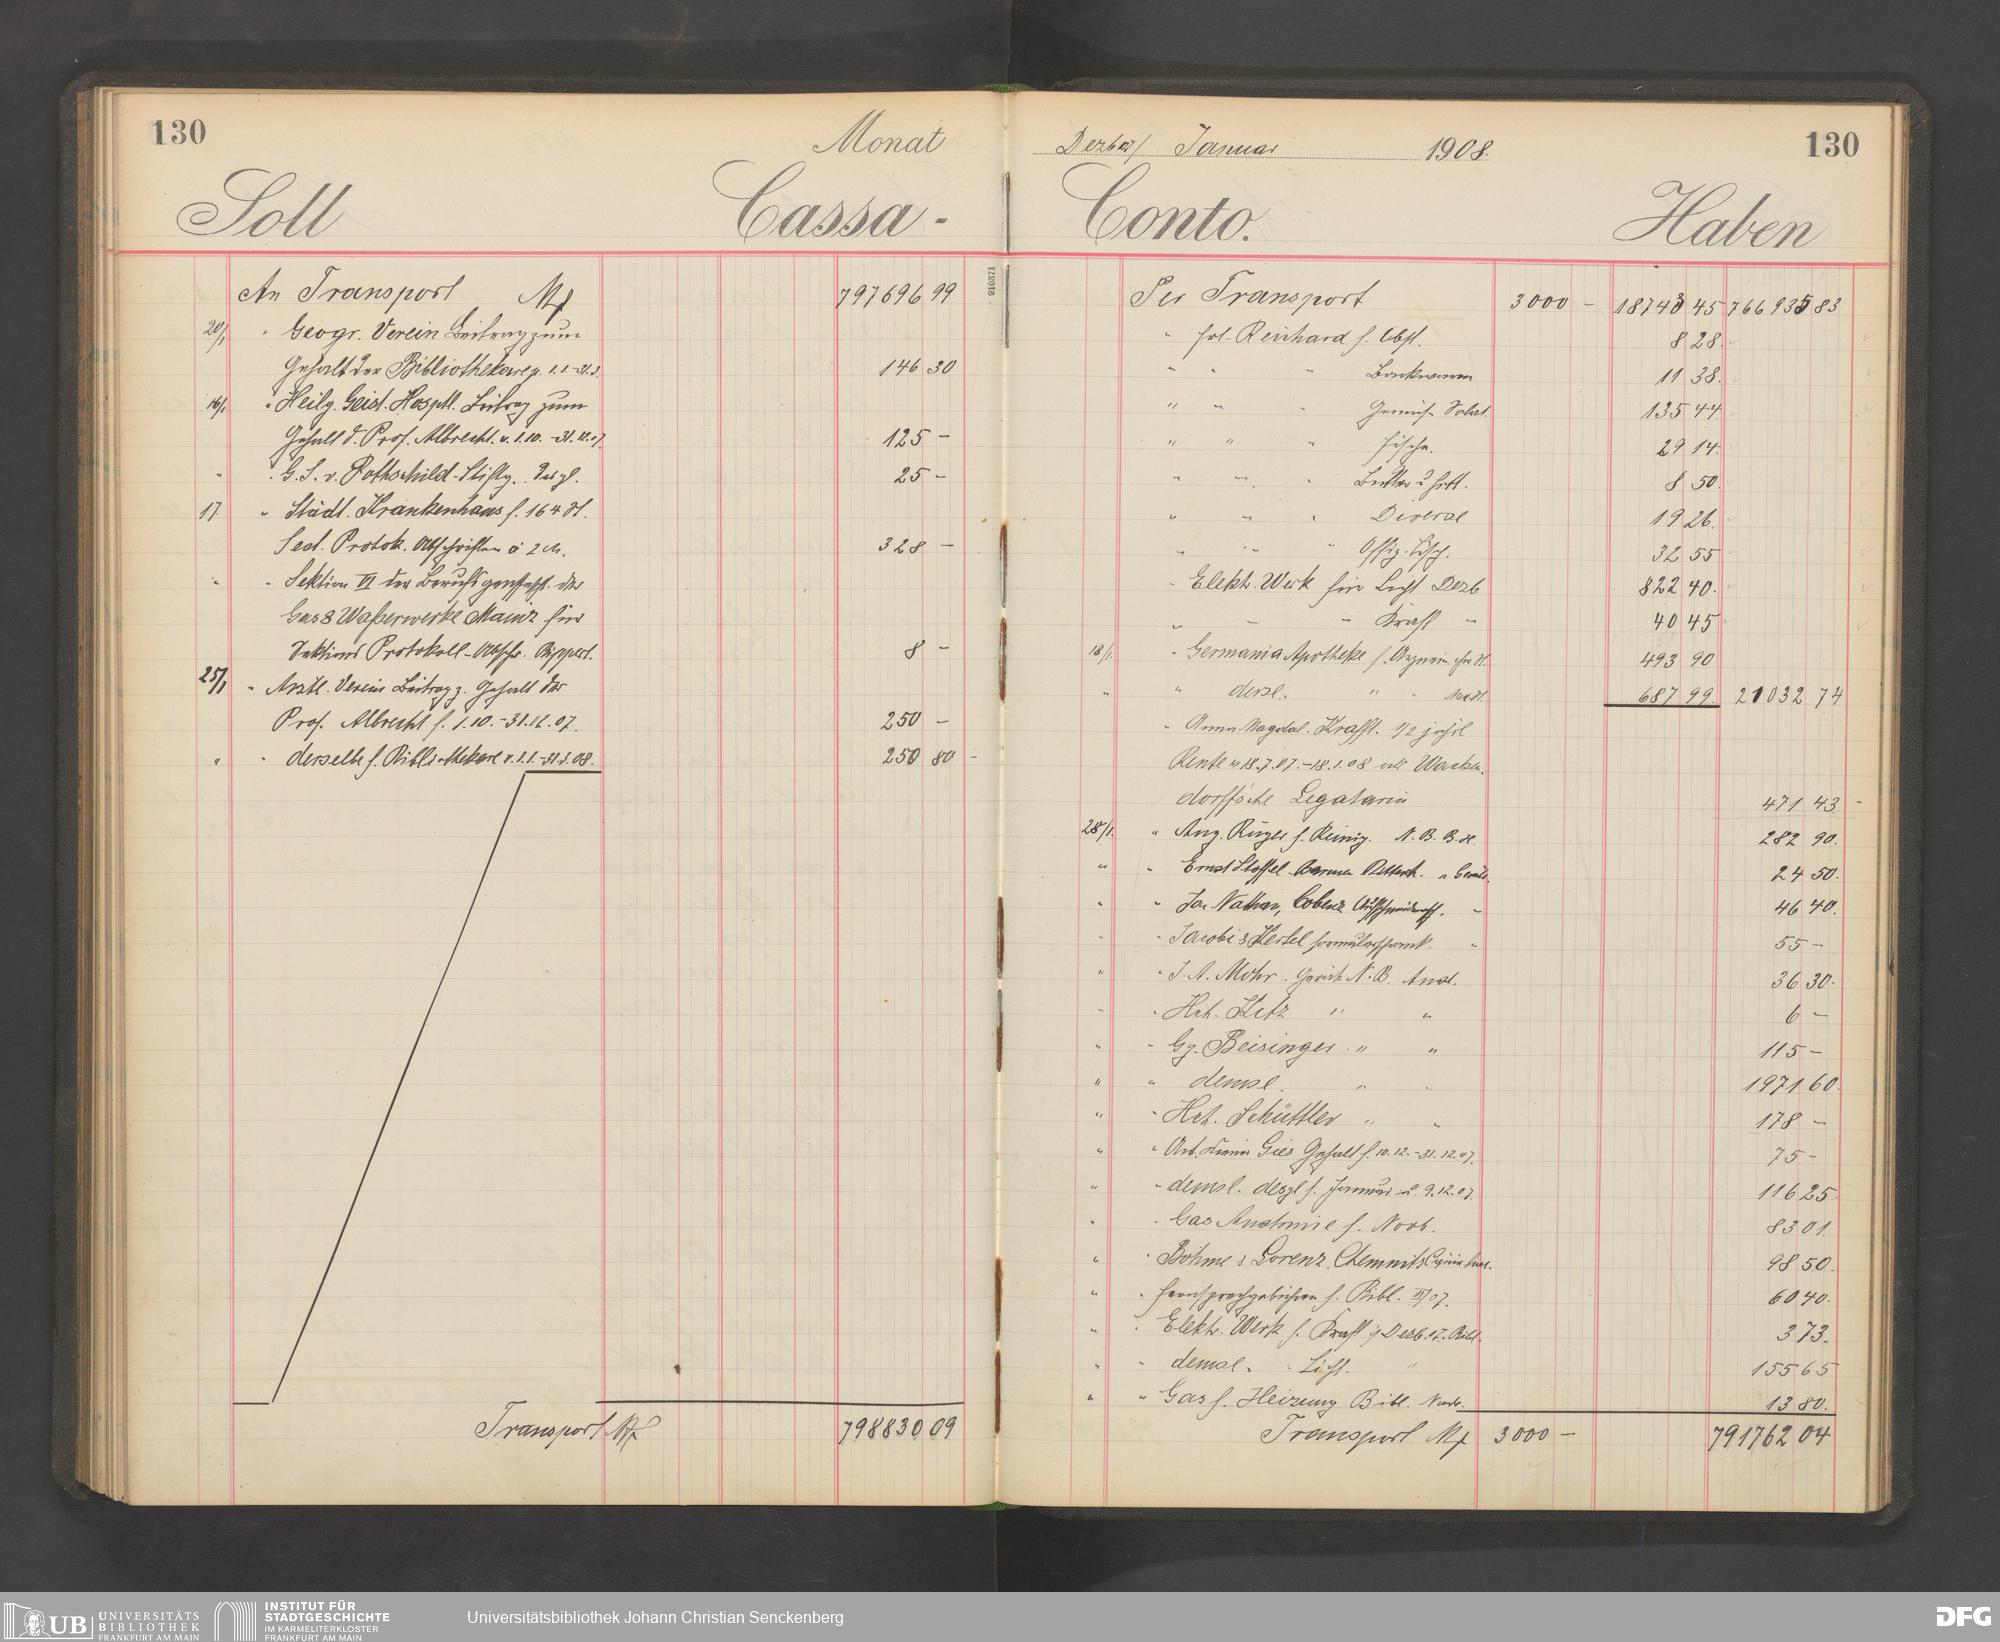 130
Monat
Soll
Cassa -
An Transport M 797696 99
20/1 " Geogr. Verein Beitrag zum
Gehalt der Bibliothekare p. 1.1.-31.3. 146 30
16/1 " Heilg. Geist. Hospitl. Beitrag zum
Gehalt d. Prof. Albrecht. v. 1.10. -31.12.07. 125 -
" " G. S. v. Rothschild-Stiftg. desgl. 25 -
17 " Städt. Krankenhaus f. 164 St.
Sect. Protok. Abschriften à 2 M. 328 -
" " Sektion VI der Berufsgenossensch. der
Gas & Waßerwerke Mainz für
Sektions Protokoll-Abschr. Rippert. 8 -
25/1 " Arztl. Verein Beitrag z. Gehalt des
Prof. Albrecht f. 1.10.-31.12.07. 250 -
" " derselbe f. Bibliothekare v. 1.1.-31.3.08. 250 80 -
Transport M 798830 09
910871
Dezber/ Januar 1908.
130
Conto.
Haben
Per Transport 3000 - 18743 45 766935 83
" Frl. Reinhard f. Obst. 8 28.
" " " Backwaren 11 38.
" " " Gemüse Salat. 135 44.
" " " Fische. 29 14.
" " " Butter u Fett. 8 50.
" " " Diverse 19 26.
" " " Offiz. Tisch. 32 55
" Elektr. Werk für Licht Dezb 822 40.
" " " Kraft " 40 45
18/1. " Germania Apotheke f. Arznein 493 90
" " dersl. " " 687 99. 21032 74
" Anna Magdal. Krafft. 1/2 jährl
Rente v 18.7.07.-18.1.08 als Wacken-
dorff'sche Legatarin 471 43 -
25/1. " Aug. Rüger f. Reinig. N. B. B. 282 90.
" " Ernst Stoffel Barmen 24 50.
" " Jac Nathan, Cobenz 46 40.
" " Jacobi & Hertel Formulardruck " 55 -
" " J. A. Mohr. N. B. Anat. 36 30.
" " Hch. Ketz " " 6 -
" " Gg. Beisinger " " 115 -
" " demsl. " " 1971 60.
" " Hch. Schüttler " " 178 -
" " Gies Gehalt f. 10.12.-31.12.07. 75 -
" " demsl. desgl f. Januar u. 9.12.07. 116 25.
" " Gas Anatomie f. Novb. 83 01.
" " Böhme & Lorenz, Chemnitz 98 50.
" " Fernsprechgebühren f. Bibl. 60 40.
" " Elektr. Werk f. Kraft p Dezb. 07. Bibl. 3 73.
" " demsl. " Licht. " 155 65
" " Gas f. Heizung Bibl. Novb. 13 80.
Transport M 3000 - 791762 04
UB UNIVERSITÄTS
BIBLIOTHEK
FRANKFURT AM MAIN
INSTITUT FÜR
STADTGESCHICHTE
IM KARMELITERKLOSTER
FRANKFURT AM MAIN
Universitätsbibliothek Johann Christian Senckenberg
DFG